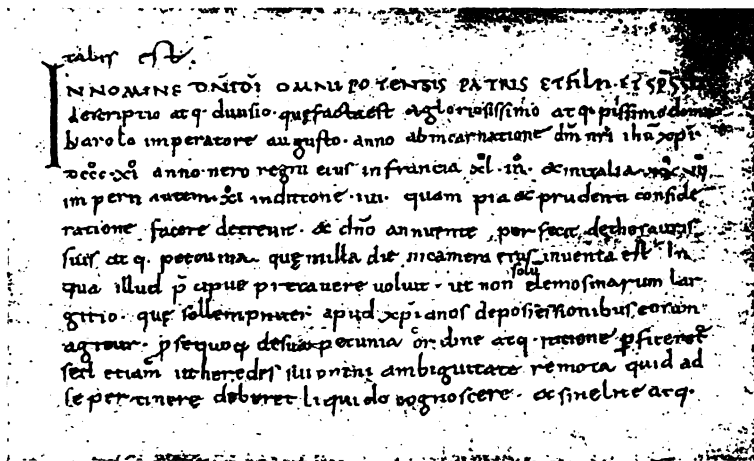 tabis est.
IN NOMINE DNI DI OMNIPOTENTIS PATRIS ET FILII ET SPS SCI
descriptio atq. diuisio. quę facta est a gloriosissimo atq. piissimo domno
karolo imperatore augusto. anno ab incarnatione dni nri ihu xpi.
DCCC.XI anno uero regni eius in francia XL.III. & in italia XXXVII
imperii autem XI indictione. iiii. quam pia & prudenti conside
ratione facere decreuit. & dno annuente perfecit de thesauris
suis atq. pecunia. quę in illa die in camera eius inuenta est. In
qua illud pcipue precauere uoluit. ut non solu elemosinarum lar
gitio. quę sollempniter apud xpianos de possessionibus eorum
agitur. p se quoq. de sua pecunia ordine atq. ratione pficeret
sed etiam ut heredes sui omni ambiguitate remota quid ad
se pertinere deberet liquido cognoscere. & sine lite atq.